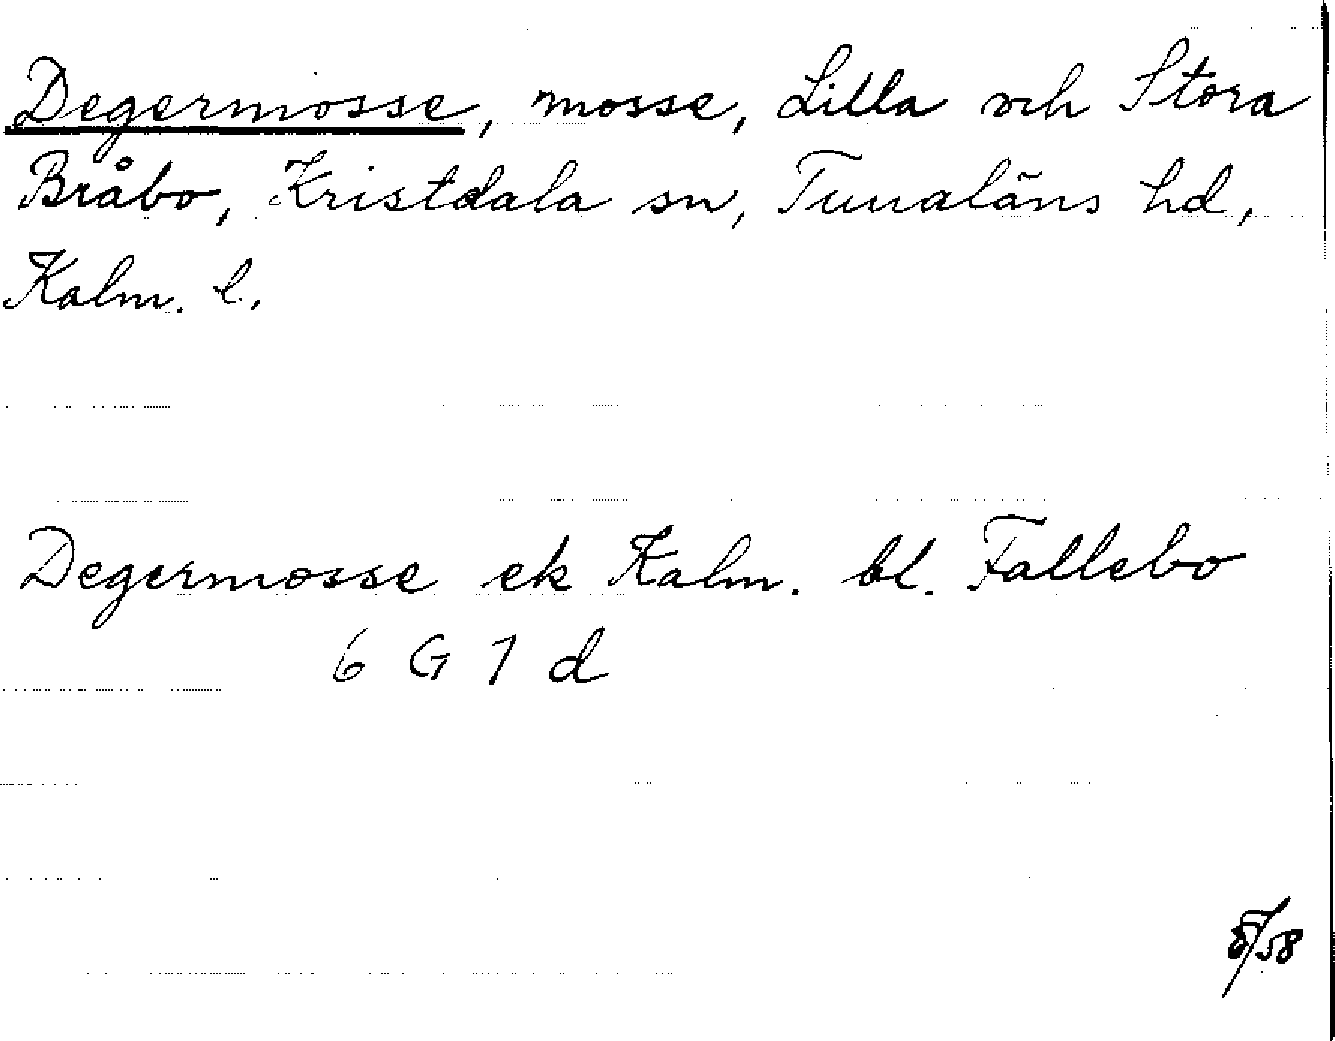 Degermosse, mosse, Lilla och Stora
Bråbo, Kristdala sn, Tunaläns hd,
Kalm. l.
Degermosse ek Kalm. bl. Fallebo
6 G 7 d